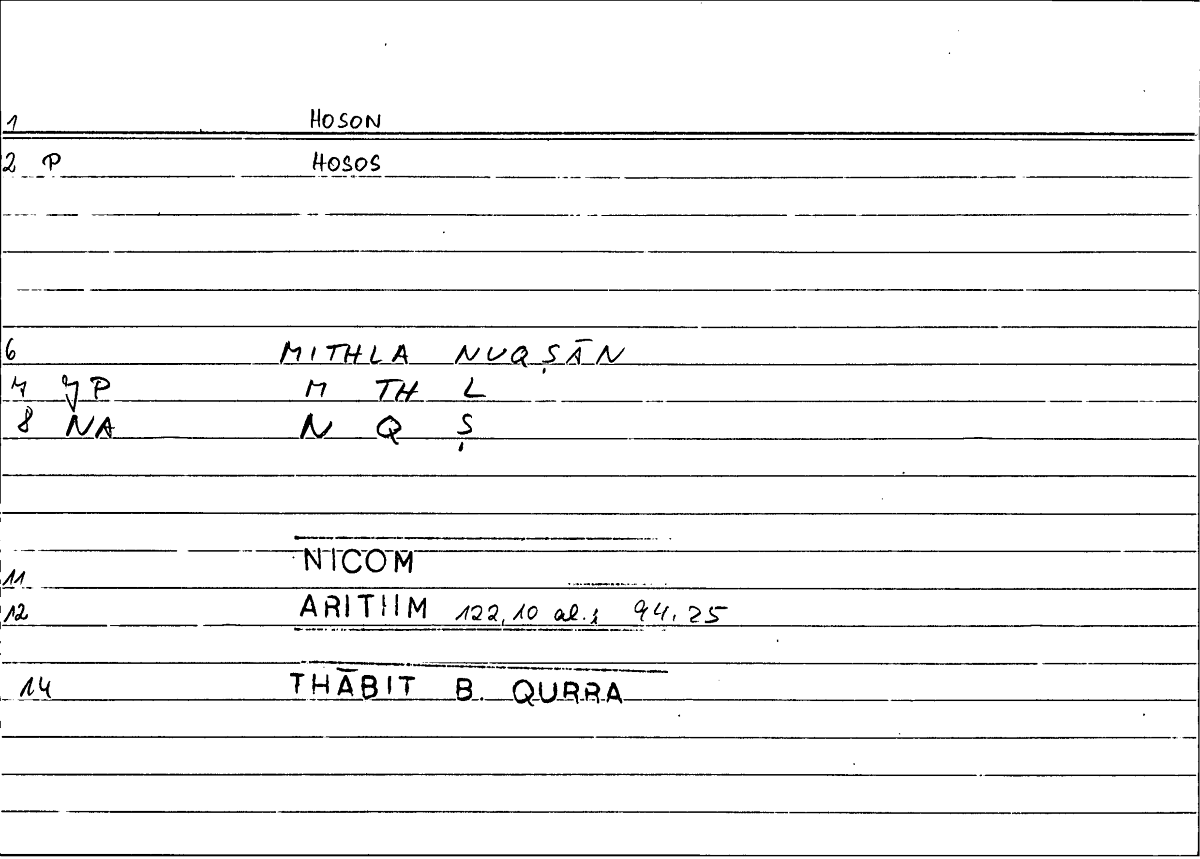 1 HOSON
2 P HOSOS
6 MITHLA NUQṢĀN
7 JP M TH L
8 NA N Q Ṣ
11 NICOM
12 ARITHM 122,10 al.; 94.25
14 THĀBIT B. QURRA